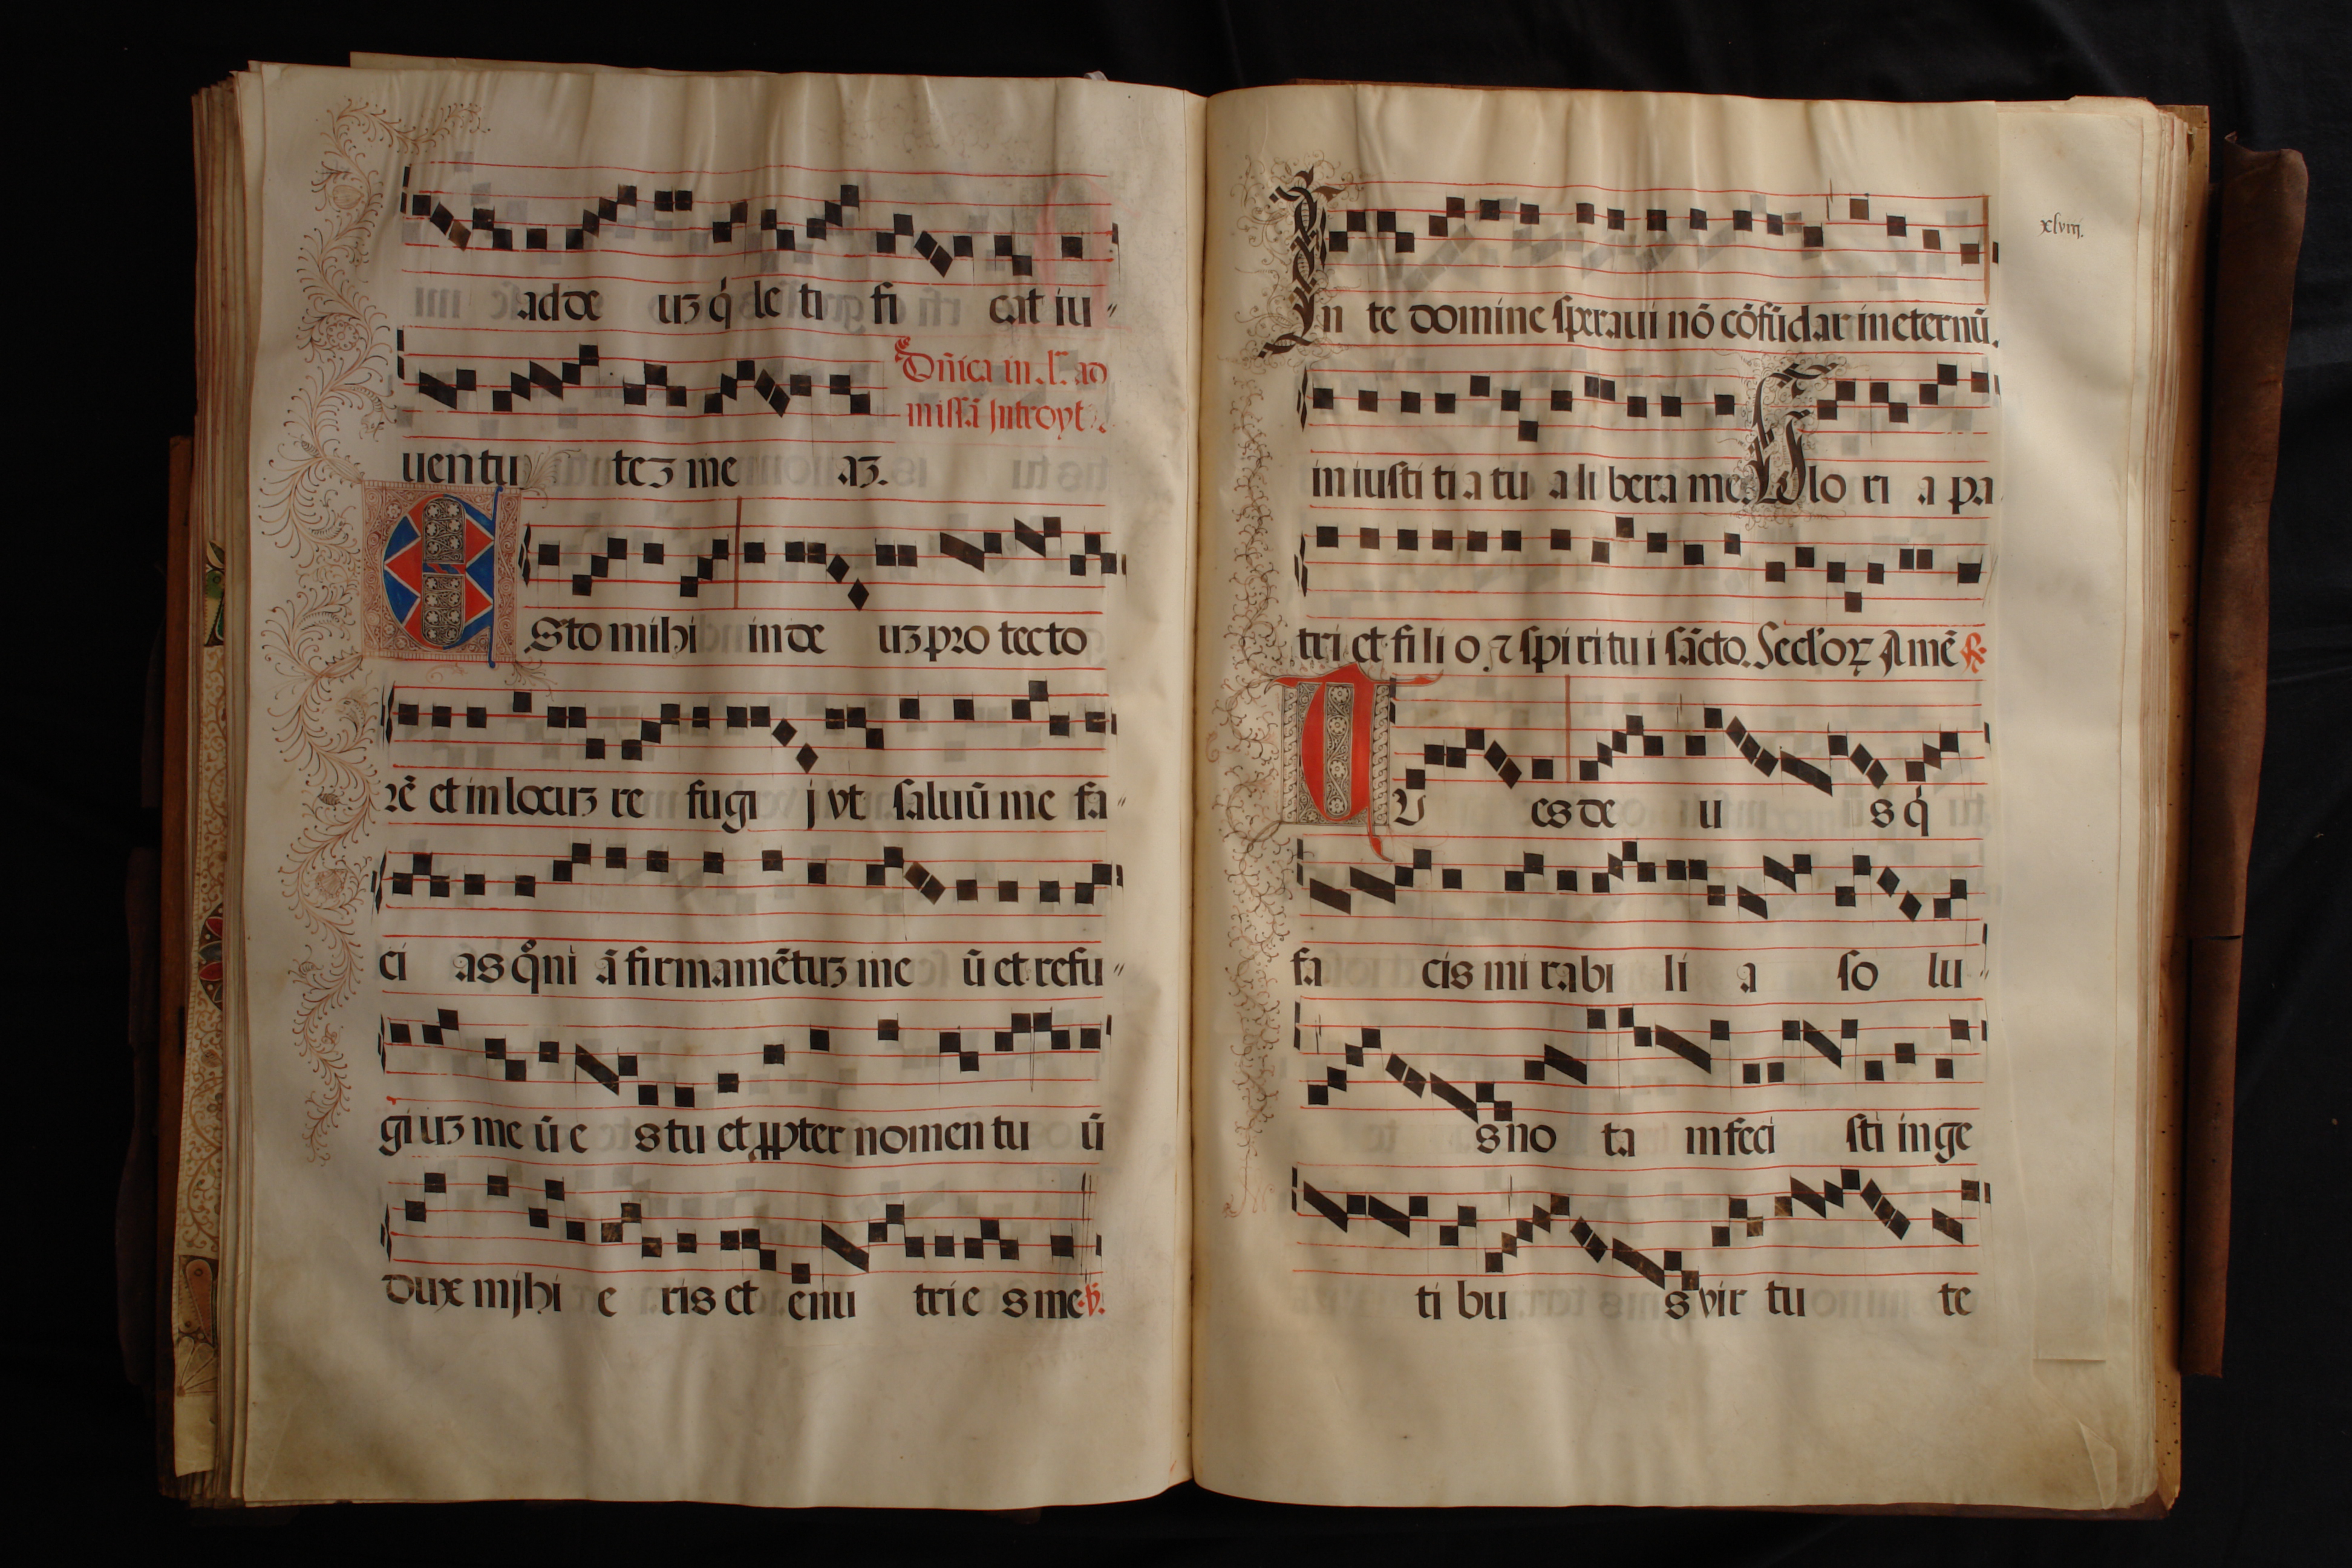 ad de uʒ q̇ le ti fi cat iu〃
Dn̄ica in .l. ad
missā Introyt.
uen tu teʒ me aʒ.
ESto mihi in de uʒ pro tecto
rē et in locuʒ re fugi j vt saluū me fa〃
ci as qͦni ā firmamētuʒ me ū et refu〃
giuʒ me ū e s tu et ꝓpter nomen tu ū
dux mjhi e ris et enu trie s me. ꝟ.
xlviij.
In te domine speraui nō cōfūdar in eternū.
in iusti ti a tu a li bera me. Glo ri a pa
tri et fi li o. ⁊ spi ri tu i sācto. Seclʼoꝝ Amē ℟.
TU es de u s q̇
fa cis mi rabi li a so lu〃
s no ta m feci sti in ge
ti bu s vir tu te